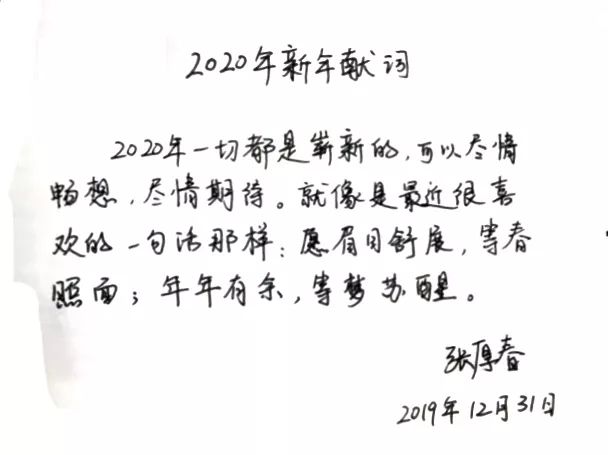 2020年新年献词
2020年一切都是崭新的,可以尽情
畅想,尽情期待。就像是最近很喜
欢的一句话那样:愿眉目舒展,等春
照面;年年有余,等梦苏醒。
张厚春
2019年12月31日